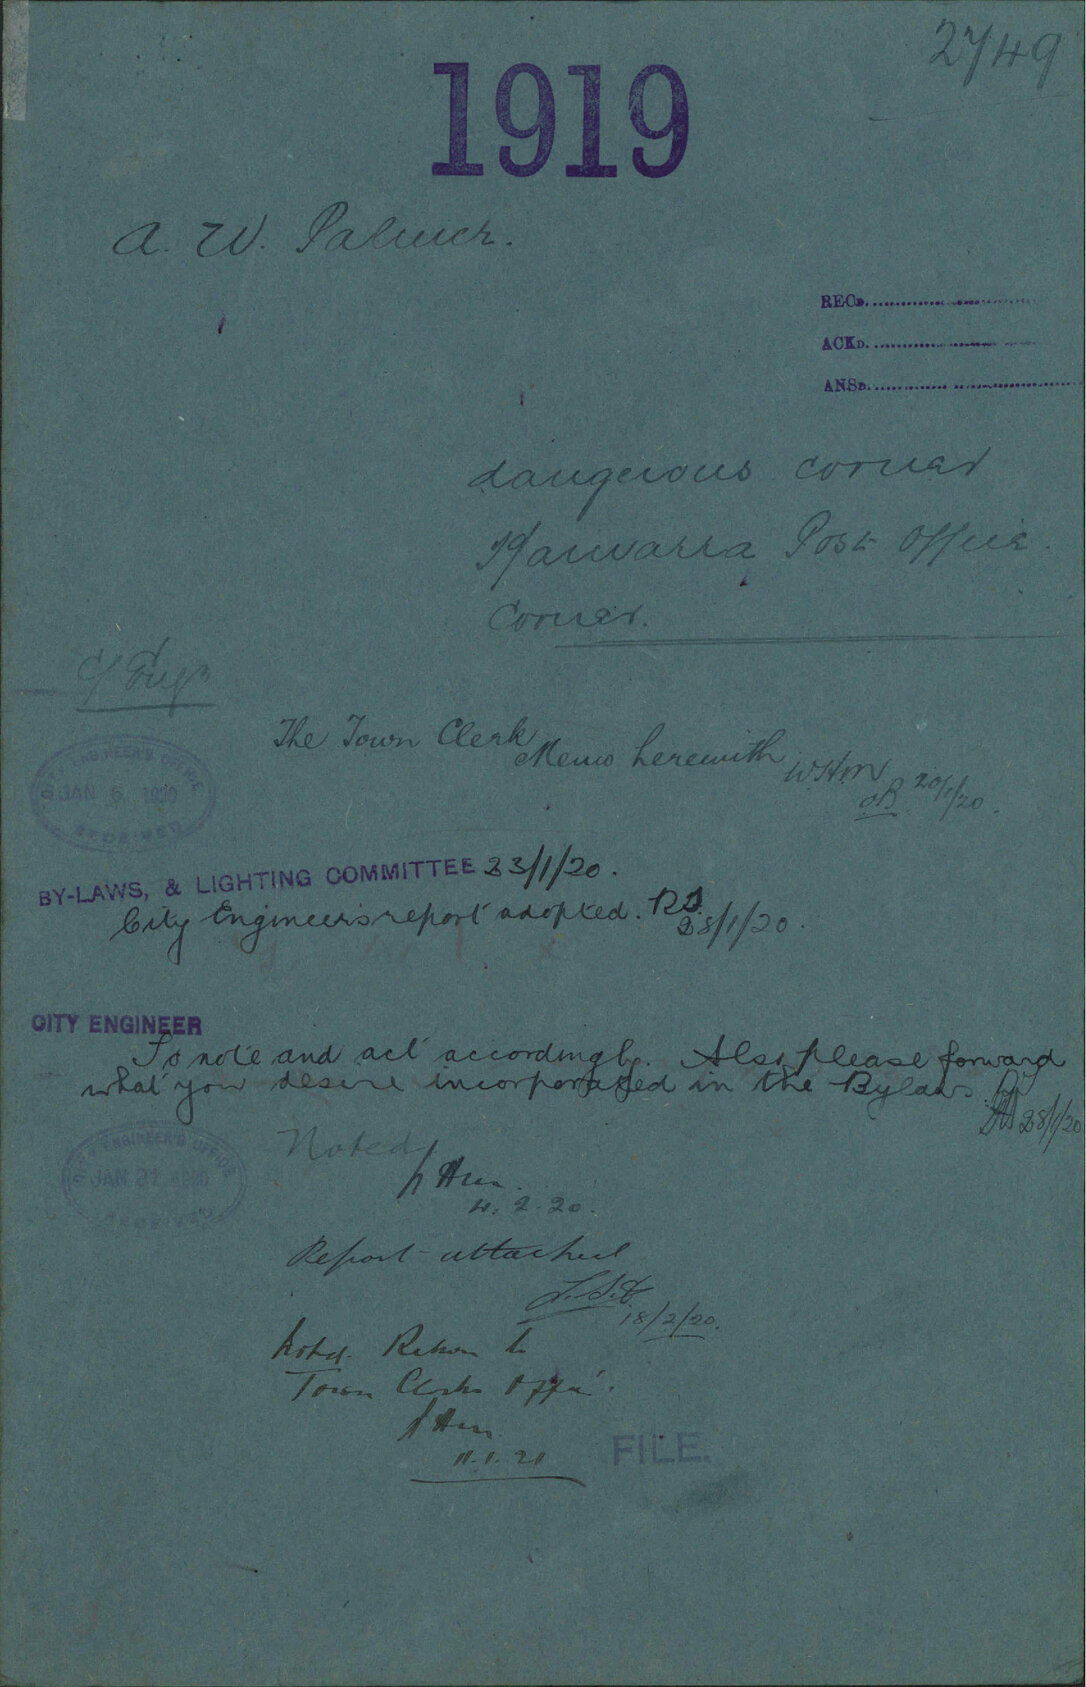 2749
1919
A. W. Palmer.
RECD.
ACKD.
ANSD.
dangerous corner
Post Office
Corner.
C/Engr
The Town Clerk
Memo herewith
WHM
20/1/20.
CITY ENGINEER'S OFFICE
JAN 6 1920
RECEIVED
BY-LAWS, & LIGHTING COMMITTEE 23/1/20.
City Engineer's report adopted.
28/1/20.
CITY ENGINEER
To note and act accordingly. Also please forward
what you desire incorporated in the Bylaws.
28/1/20
CITY ENGINEER'S OFFICE
JAN 31 1920
RECEIVED
Noted
4.2.20.
Report attached
18/2/20.
Noted. Return to
Town Clerks Office.
11.1.21
FILE.